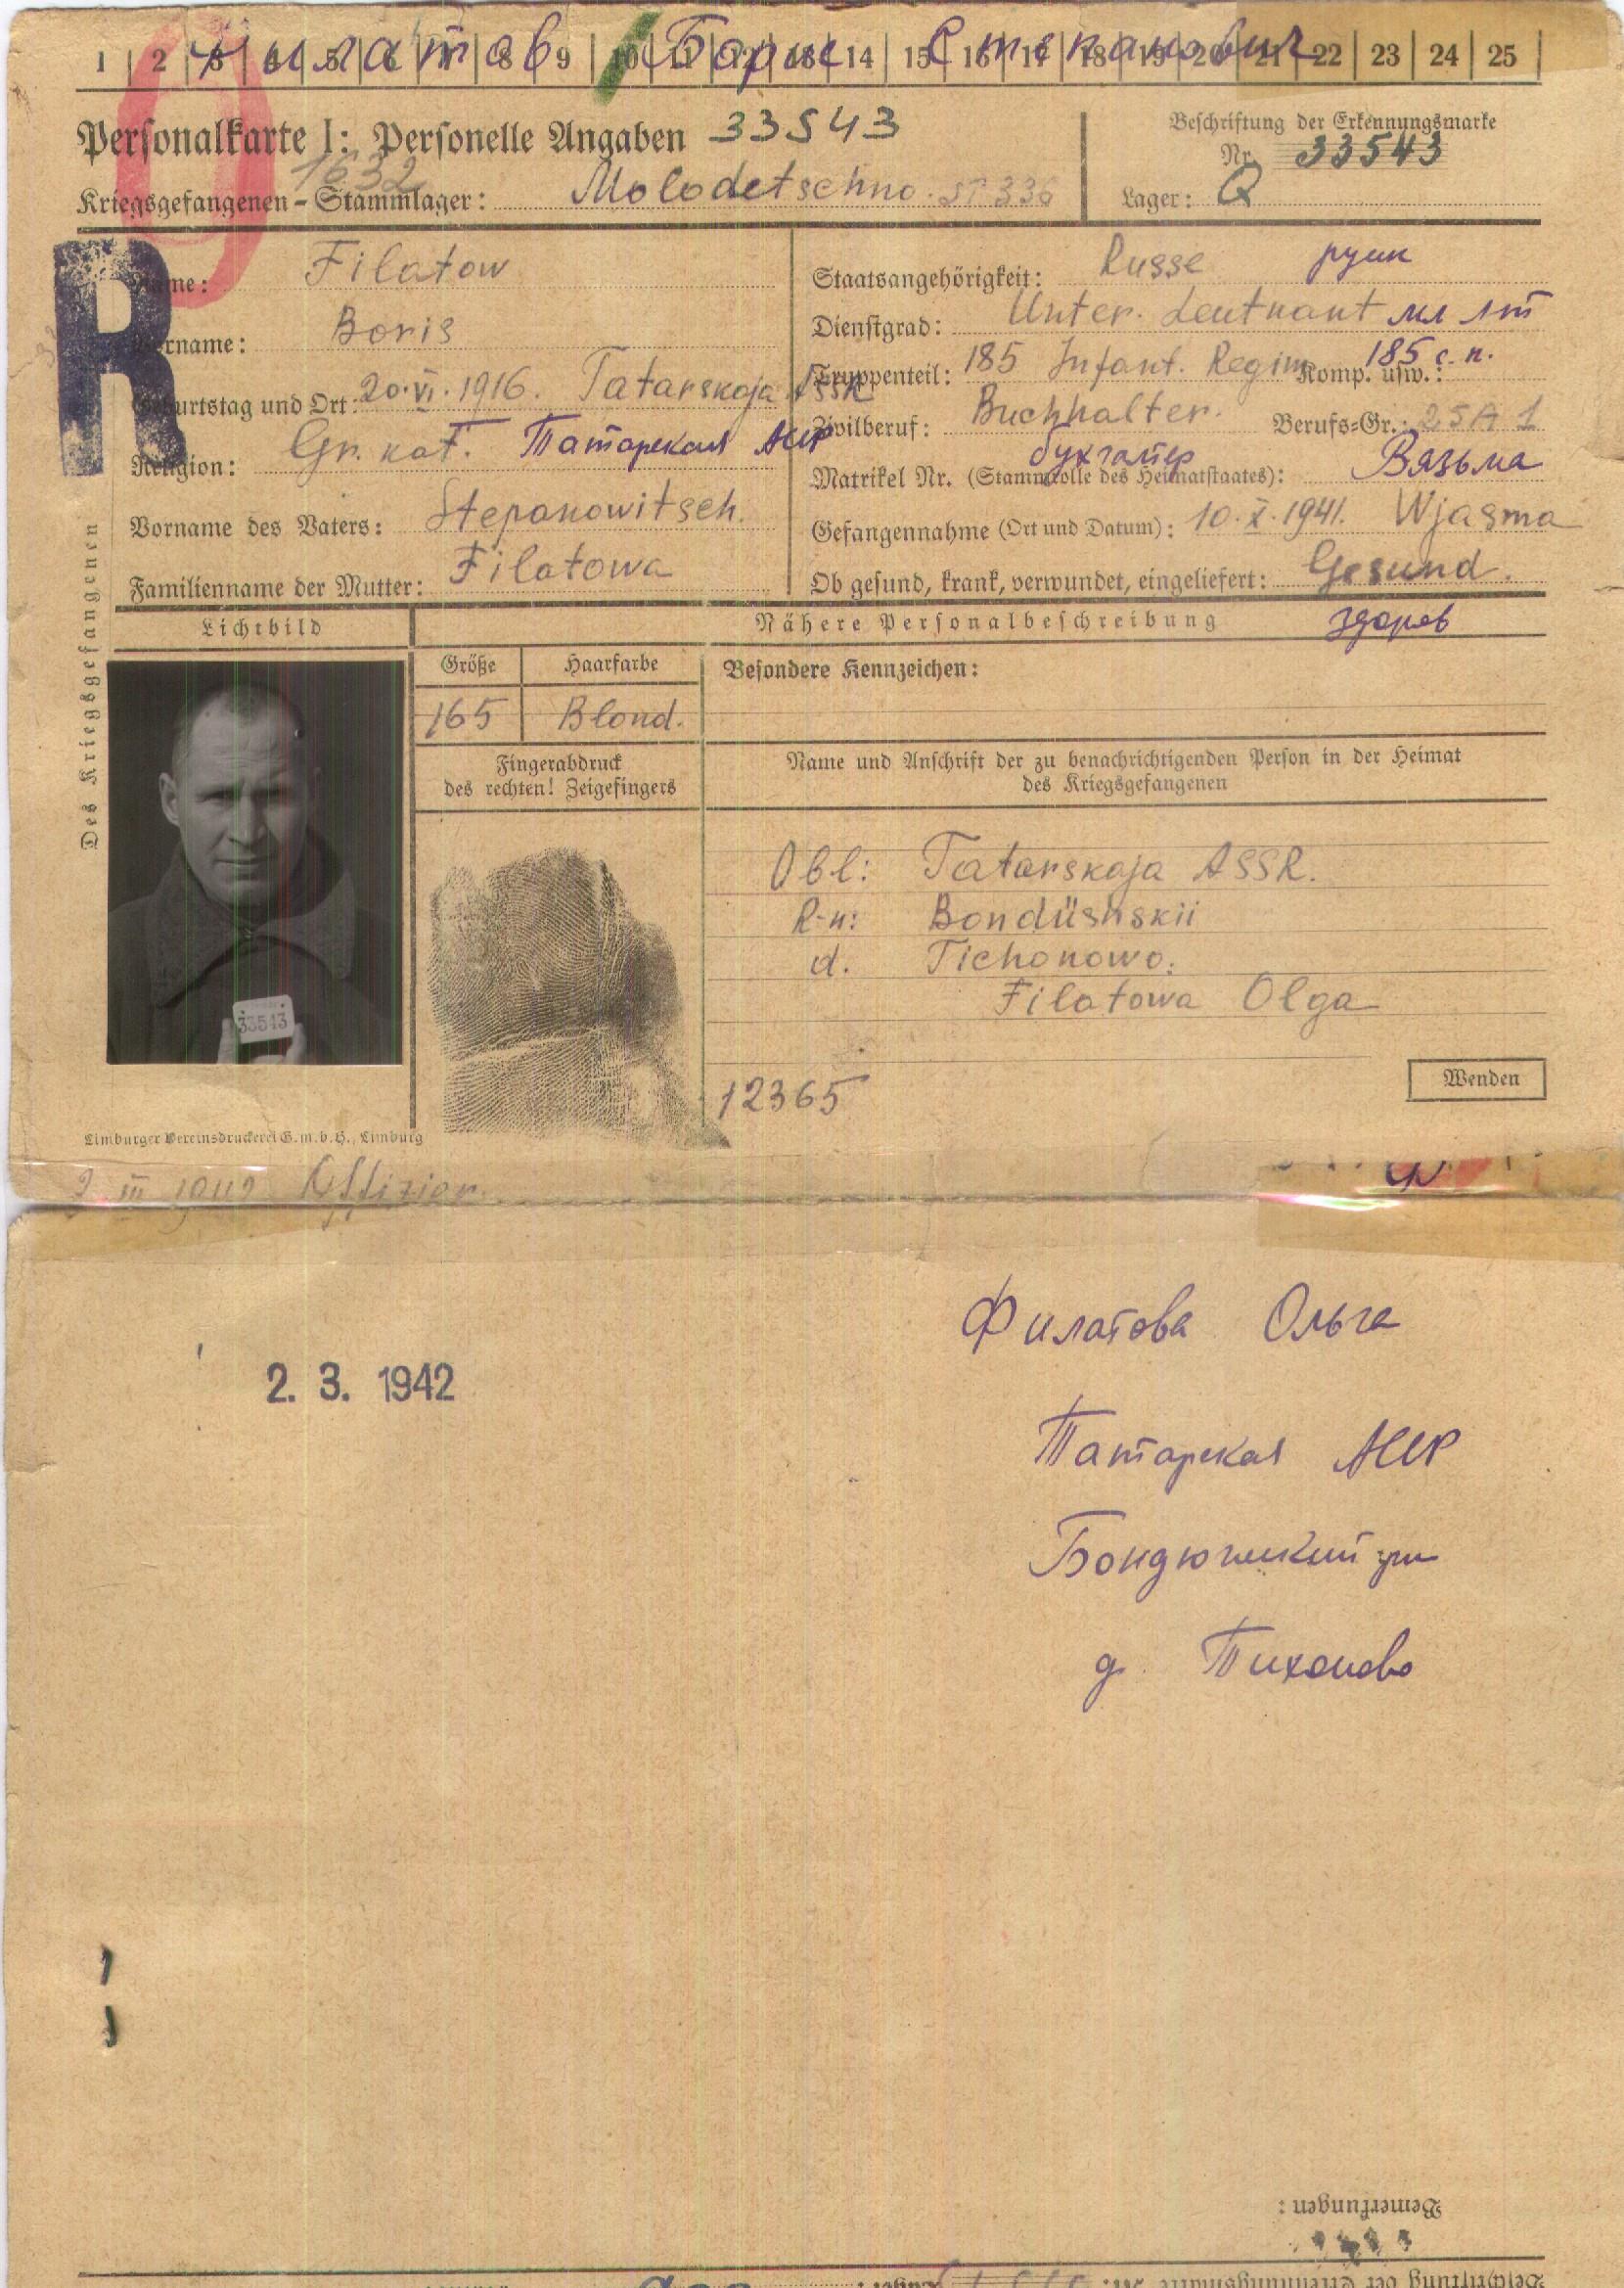 1 2 3 4 5 6 7 8 9 10 11 12 13 14 15 16 17 18 19 20 21 22 23 24 25
Филатов Борис Степанович
Personalkarte I: Personelle Angaben 33543
1632
Kriegsgefangenen-Stammlager: Molodetschno. ST 336
Beschriftung der Erkennungsmarke
Nr. 33543
Lager: Q
R
Des Kriegsgefangenen
Name: Filatow
Vorname: Boris
Geburtstag und Ort: 20.VI.1916. Tatarskaja ASSR
Religion: Gr. kat. Татарская АССР
Vorname des Vaters: Stepanowitsch.
Familienname der Mutter: Filatowa
Staatsangehörigkeit: Russe русск
Dienstgrad: Unter. Leutnant мл лт
Truppenteil: 185 Infant. Regim Komp. usw.: 185 с.п.
Zivilberuf: Buchhalter. Berufs-Gr.: 25A1
бухгалтер
Matrikel Nr. (Stammrolle des Heimatstaates): Вязьма
Gefangennahme (Ort und Datum): 10.X.1941. Wjasma
Ob gesund, krank, verwundet, eingeliefert: Gesund.
здоров
Lichtbild
Nähere Personalbeschreibung
Größe Haarfarbe
165 Blond.
Besondere Kennzeichen:
Fingerabdruck
des rechten! Zeigefingers
Name und Anschrift der zu benachrichtigenden Person in der Heimat
des Kriegsgefangenen
Obl: Tatarskaja ASSR.
R-n: Bondüshskii
d. Tichonowo.
Filatowa Olga
33543
12365
Wenden
Limburger Vereinsdruckerei G.m.b.H., Limburg
2 III 1942 Offizier
2. 3. 1942
Филатова Ольга
Татарская АССР
Бондюжский рн
д. Тихоново
Bemerkungen:
Beschriftung der Erkennungsmarke Nr.
Lager: